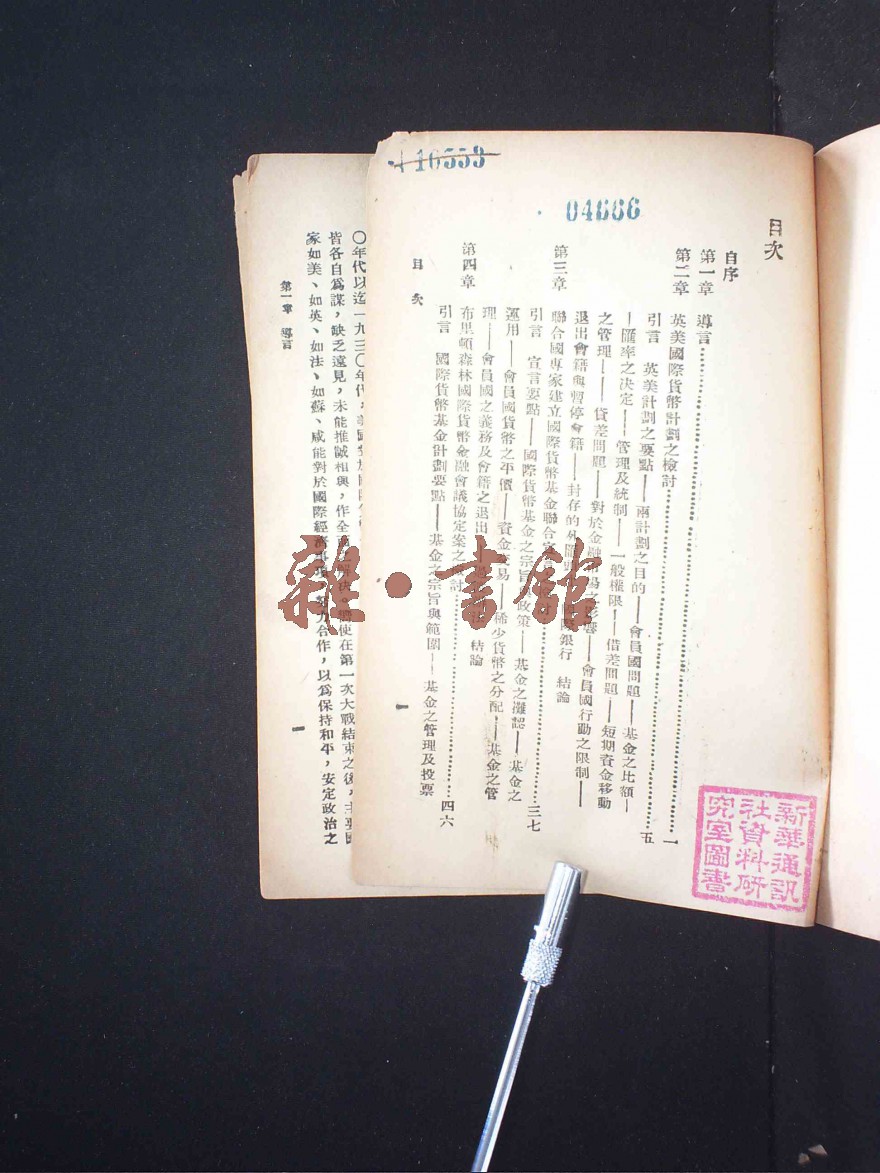 10553
04666
目次
自序
第一章 導言……一
第二章 英美國際貨幣計劃之檢討……五
引言 英美計劃之要點——兩計劃之目的——會員國問題——基金之比額—
—匯率之決定——管理及統制——一般權限——借差問題——短期資金移動
之管理——貨差問題——對於金融市場之影響——會員國行動之限制——
退出會籍與暫停會籍——封存的外匯 國際銀行 結論
第三章 聯合國專家建立國際貨幣基金聯合宣言……三七
引言 宣言要點——國際貨幣基金之宗旨 政策——基金之攤認——基金之
運用——會員國貨幣之平價——資金交易——稀少貨幣之分配——基金之管
理——會員國之義務及會籍之退出 結論
第四章 布里頓森林國際貨幣金融會議協定案之檢討……四六
引言 國際貨幣基金計劃要點——基金之宗旨與範圍——基金之管理及投票
目次
一
新華通訊
社資料研
究室圖書
〇年代以迄一九三〇年代，
皆各自爲謀，缺乏遠見，未能推誠相與，作全 解決 使在第一次大戰結束之後，主要國
家如美、如英、如法、如蘇、咸能對於國際經濟 努力合作，以爲保持和平，安定政治之
第一章 導言
一
雜·書館